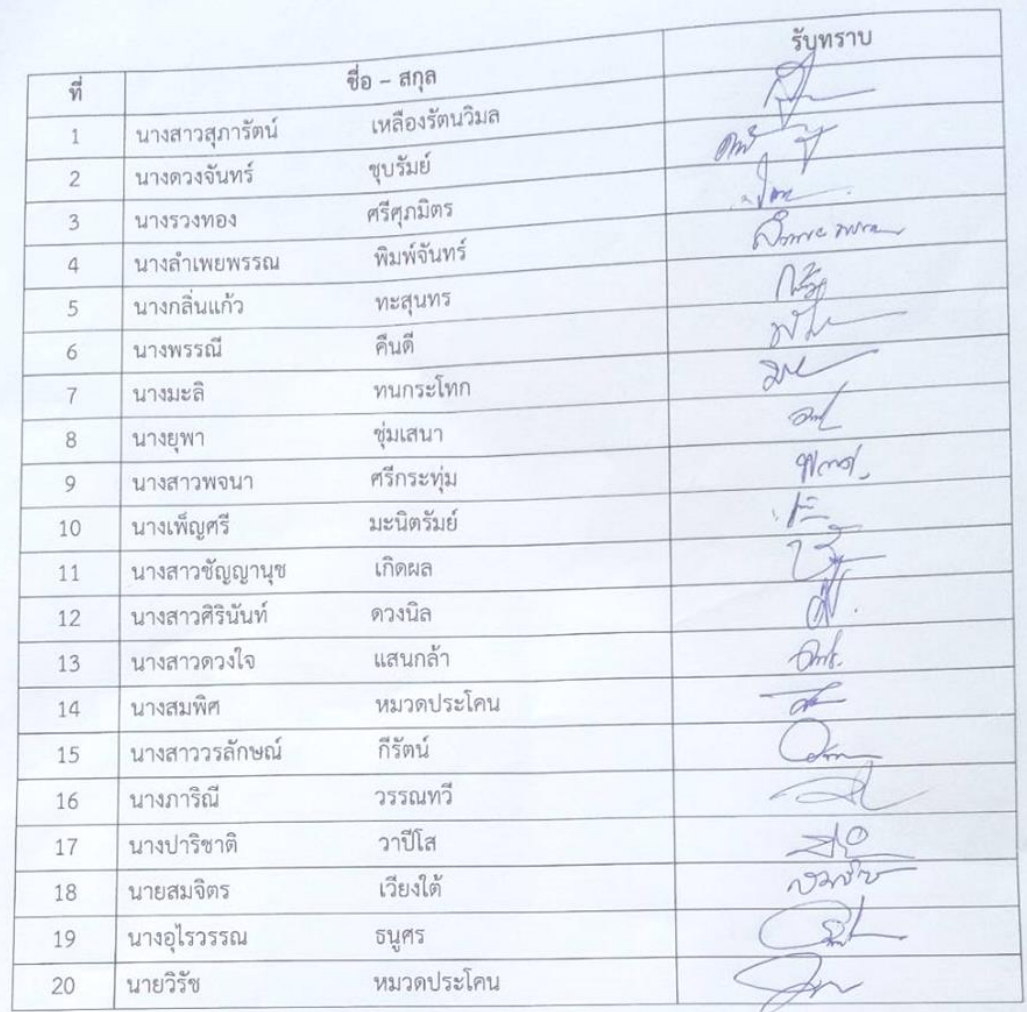 ที่ ชื่อ – สกุล รับทราบ
1 นางสาวสุภารัตน์ เหลืองรัตนวิมล
2 นางดวงจันทร์ ชุบรัมย์
3 นางรวงทอง ศรีศุภมิตร
4 นางลำเพยพรรณ พิมพ์จันทร์
5 นางกลิ่นแก้ว ทะสุนทร
6 นางพรรณี คืนดี
7 นางมะลิ ทนกระโทก
8 นางยุพา ชุ่มเสนา
9 นางสาวพจนา ศรีกระทุ่ม
10 นางเพ็ญศรี มะนิตรัมย์
11 นางสาวชัญญานุช เกิดผล
12 นางสาวศิรินันท์ ดวงนิล
13 นางสาวดวงใจ แสนกล้า
14 นางสมพิศ หมวดประโคน
15 นางสาววรลักษณ์ กีรัตน์
16 นางภาริณี วรรณทวี
17 นางปาริชาติ วาปีโส
18 นายสมจิตร เวียงใต้
19 นางอุไรวรรณ ธนูศร
20 นายวิรัช หมวดประโคน